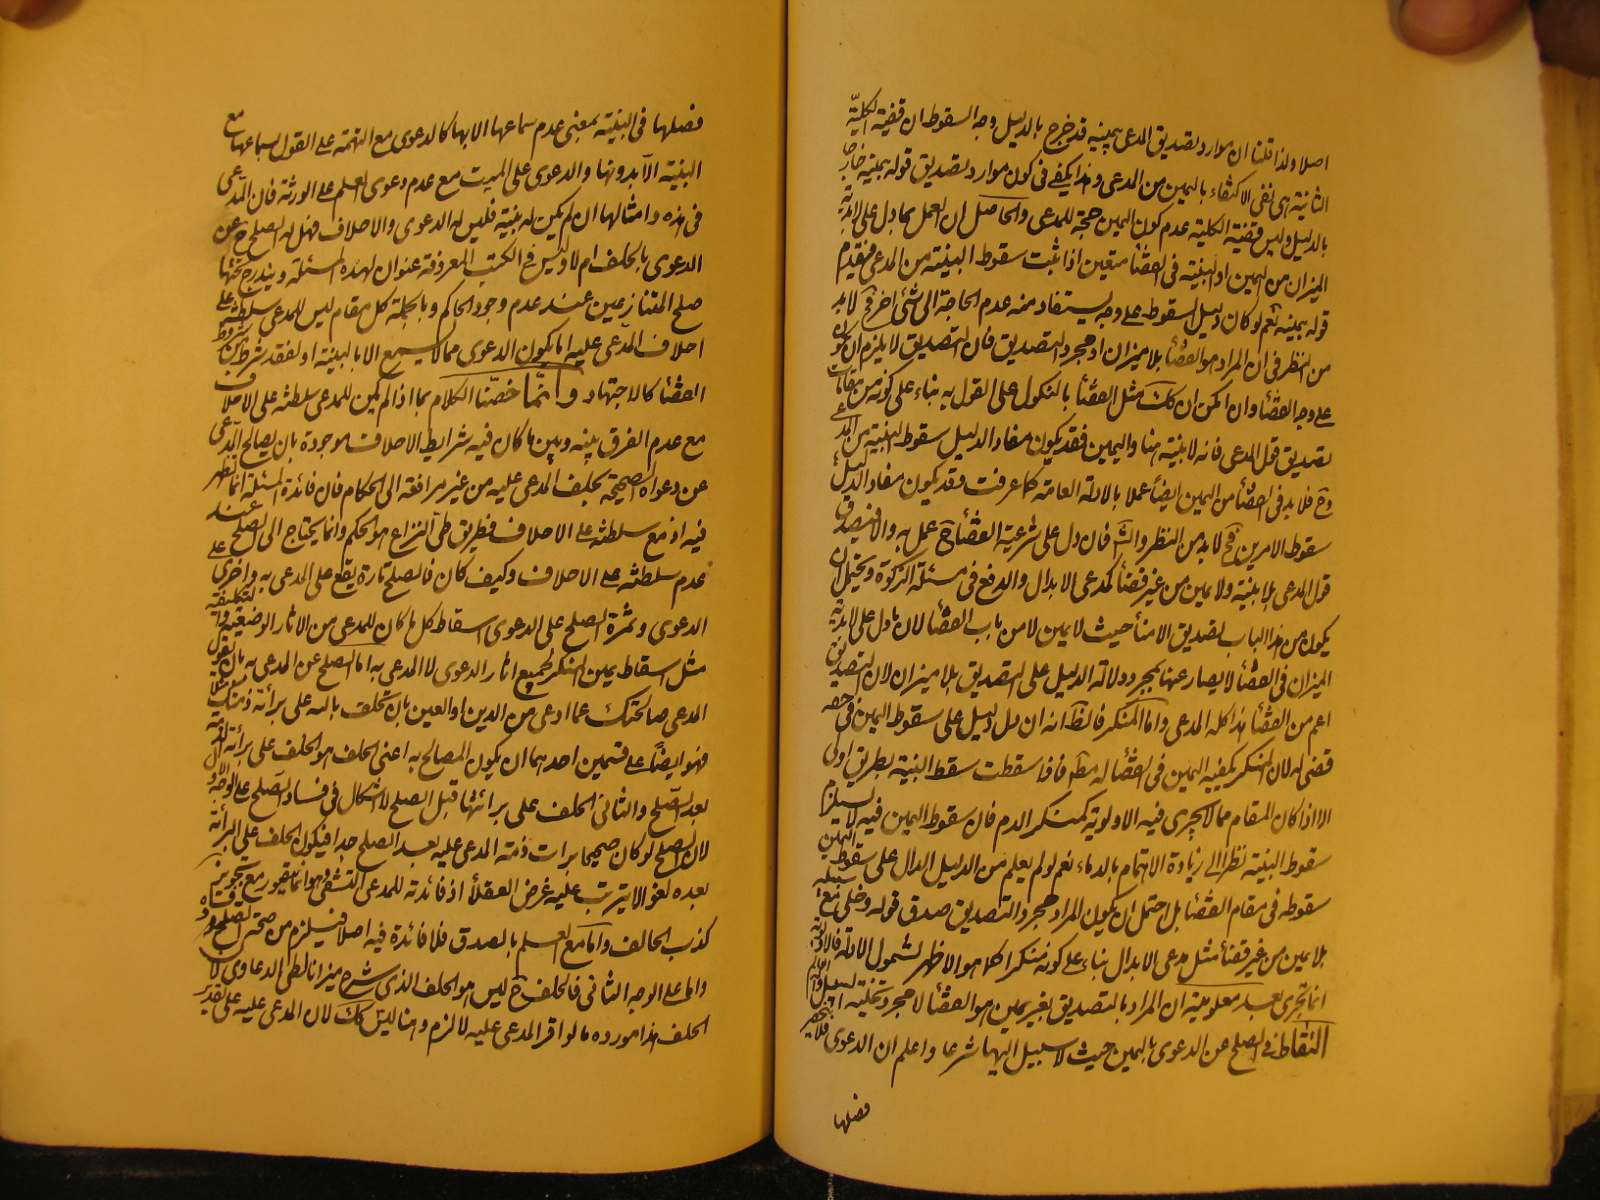 اصلا ولذا قلنا ان موارد تصديق المدعى بيمينه قد خرج بالدليل وجه السقوط ان قضية الكلية
الثانية هى نفى الاكتفاء باليمين من المدعى وهذا يكفى فى كون موارد تصديق قوله بيمينه خارجا
بالدليل وليس قضية الكلية عدم كون اليمين حجة للمدعى والحاصل ان العمل بما دل على لابدية
الميزان من اليمين او البينة فى القضاء متعين اذا ثبت سقوط البينة من المدعى فيقدم
قوله بيمينه نعم لو كان دليل السقوط على وجه يستفاد منه عدم الحاجة الى شئ اخر فح لابد
من النظر فى ان المراد هو القضاء بلا ميزان او مجرد التصديق فان التصديق لا يلزم ان يكون
على وجه القضاء وان امكن ان كك مثل القضاء بالنكول على القول به بناء على كونه من مقامات
تصديق قول المدعى فانه لا بينة هنا ولا يمين فقد يكون مفاد الدليل سقوط البينة من المدعى
وح فلابد فى القضاء من اليمين ايضا عملا بالادلة العامة كما عرفت وقد يكون مفاد الدليل
سقوط الامرين فح لابد من النظر فان دل على شرعية القضاء ح عمل به والا فيصدق
قول المدعى بلا بينة ولا يمين من غير قضاء كمدعى الابدال والدفع فى مسئلة الزكوة ويحتمل ان
يكون من هذا الباب تصديق الامناء حيث لا يمين لا من باب القضاء لان ما دل على لابدية
الميزان فى القضاء لا يصار عنها بمجرد دلالة الدليل على التصديق بلا ميزان لان التصديق
اعم من القضاء هذا كله المدعى واما المنكر فالظ انه ان دل دليل على سقوط اليمين فى حقه
قضى له لان المنكر يكفيه اليمين فى القضاء له مط فاذا سقطت سقط البينة بطريق اولى
الا اذا كان المقام مما لا يجرى فيه الاولوية كمنكر الدم فان سقوط اليمين فيه لا يستلزم
سقوط البينة نظرا الى زيادة الاهتمام بالدماء نعم لو لم يعلم من الدليل الدال على سقوط اليمين
سقوطه فى مقام القضاء بل احتمل ان يكون المراد مجرد التصديق صدق قوله وخلى سبيله
بلا يمين من غير قضاء مثل مدعى الابدال بناء على كونه منكرا كما هو الاظهر لشمول الادلة فالاولوية
انما تجرى بعد معلومية ان المراد بالتصديق بغير يمين هو القضاء لا مجرد تخلية السبيل والله العالم
التقاط فى الصلح عن الدعوى باليمين حيث لا سبيل اليها شرعا واعلم ان الدعوى فلا ينحصر
فصلها
فصلها فى البينة بمعنى عدم سماعها الا بها كالدعوى مع التهمة على القول بسماعها مع
البينة لا بدونها والدعوى على الميت مع عدم دعوى العلم على الورثة فان المدعى
فى هذه وامثالها ان لم يكن له بينة فليس له الدعوى والاحلاف فهل له الصلح ح عن
الدعوى بالحلف ام لا وليس فى الكتب المعروفة عنوان لهذه المسئلة ويندرج تحتها
صلح المتنازعين عند عدم وجود الحاكم وبالجملة كل مقام ليس للمدعى سلطنة على
احلاف المدعى عليه اما لكون الدعوى مما لا يسمع الا بالبينة او لفقد شرط من شروط
القضاء كالاجتهاد وانما خصّنا الكلام بما اذا لم يكن للمدعى سلطنة على الاحلاف
مع عدم الفرق بينه وبين ما كان فيه شرايط الاحلاف موجودة بان يصالح المدعى
عن دعواه الصحيحة بحلف المدعى عليه من غير مرافعة الى الحكام فان فائدة المسئلة انما تظهر
فيه اذ مع سلطنته على الاحلاف فطريق طى النزاع هو الحكم وانما يحتاج الى الصلح عند
عدم سلطنته على الاحلاف وكيف كان فالصلح تارة يقع على المدعى به واخرى على
الدعوى وثمرة الصلح على الدعوى اسقاط كل ما كان للمدعى من الاثار الوضعية والتكليفية
مثل اسقاط يمين المنكر لجميع اثار الدعوى لا المدعى به اما الصلح عن المدعى به بان يقول
المدعى صالحتك عما ادعى من الدين او العين بان تحلف بالله على برائة ذمتك مثلا
فهو ايضا على قسمين احدهما ان يكون المصالح به اعنى الحلف هو الحلف على برائة الذمة
بعد الصلح والثانى الحلف على برائتها قبل الصلح لا اشكال فى فساد الصلح على الوجه الاول
لان الصلح لو كان صحيحا برات ذمة المدعى عليه بعد الصلح جدا فيكون الحلف على البرائة
بعده لغوا لا يترتب عليه غرض العقلاء اذ فائدته للمدعى التشفى وهو انما يتصور مع تجويز
كذب الحالف واما مع العلم بالصدق فلا فائدة فيه اصلا فيلزم من صحة الصلح فساده
واما على الوجه الثانى فالحلف ح ليس هو الحلف الذى شرع ميزانا لطى الدعاوى لا
الحلف هذا مورده ما لو اقر المدعى عليه لالزم وهنا ليس كك لان المدعى عليه على تقدير